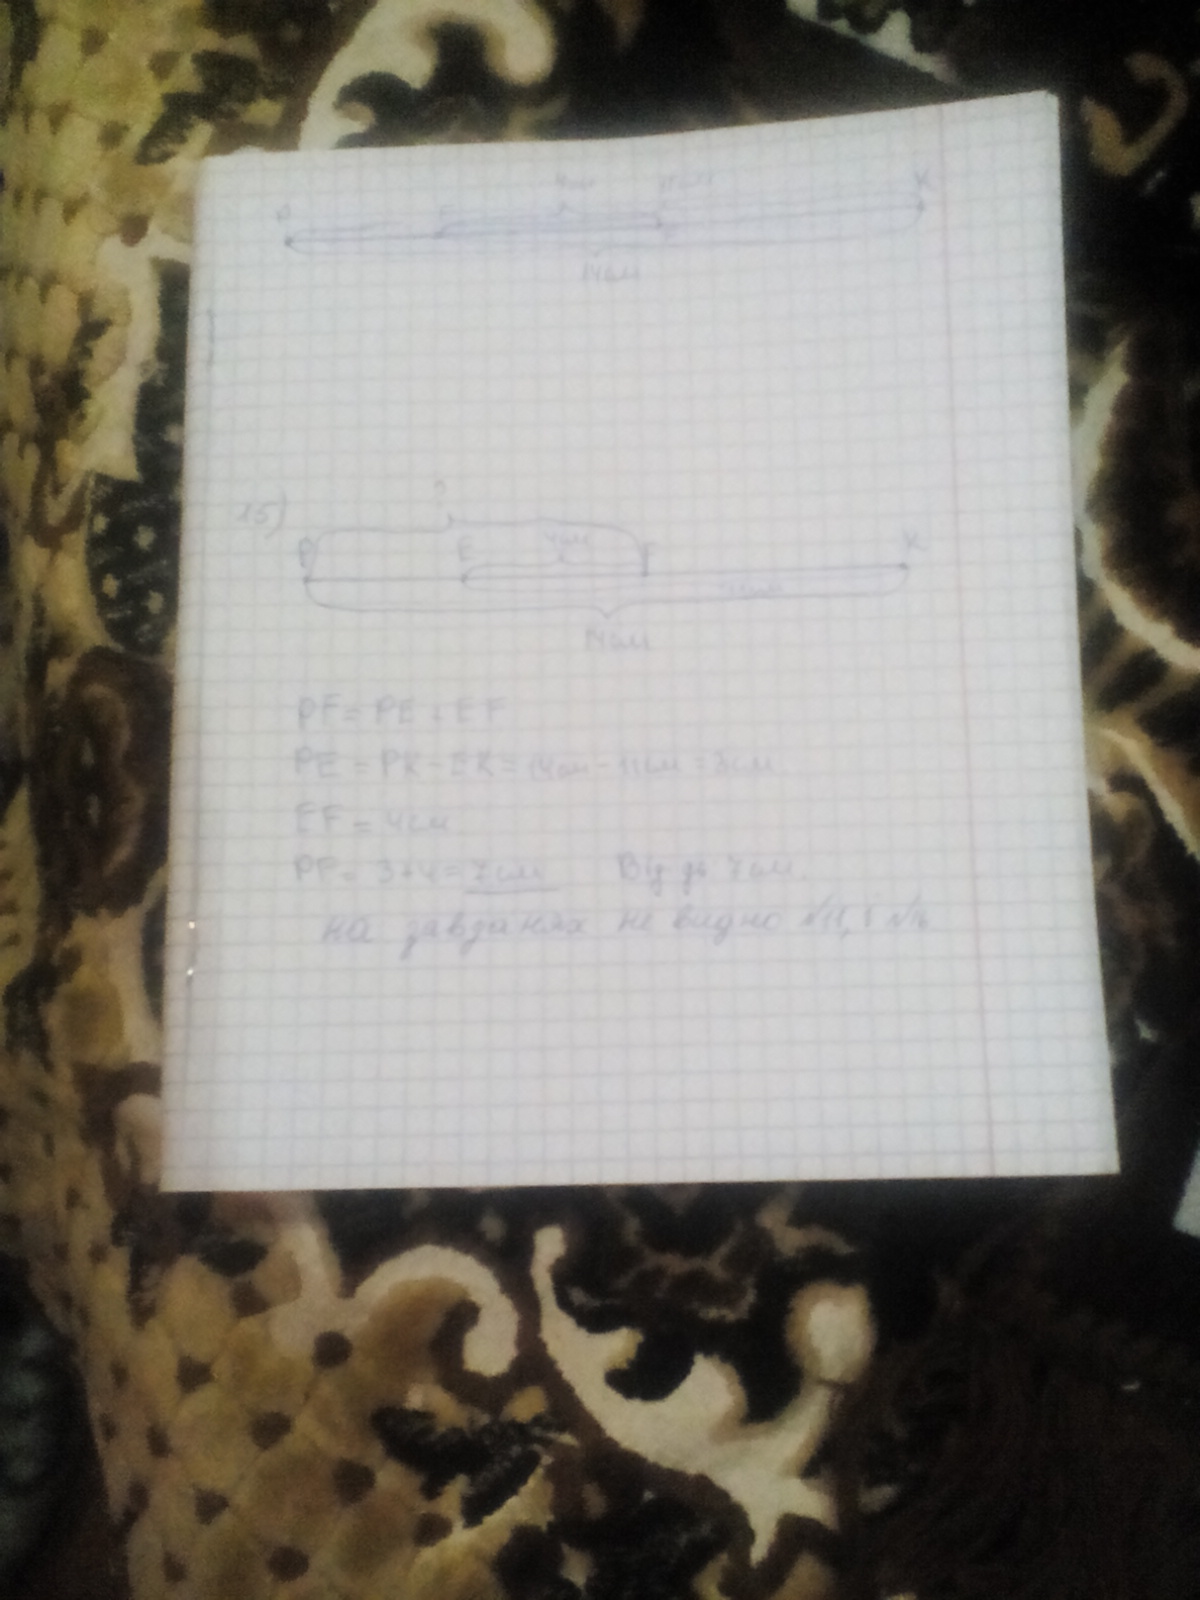 K
4см
14см
15)
?
P E 4см F K
14см
PF = PE + EF
PE = PK - EK = 14см - 11см = 3см
EF = 4см
PF = 3+4 = 7см Від дь 7см.
на завданях не видно